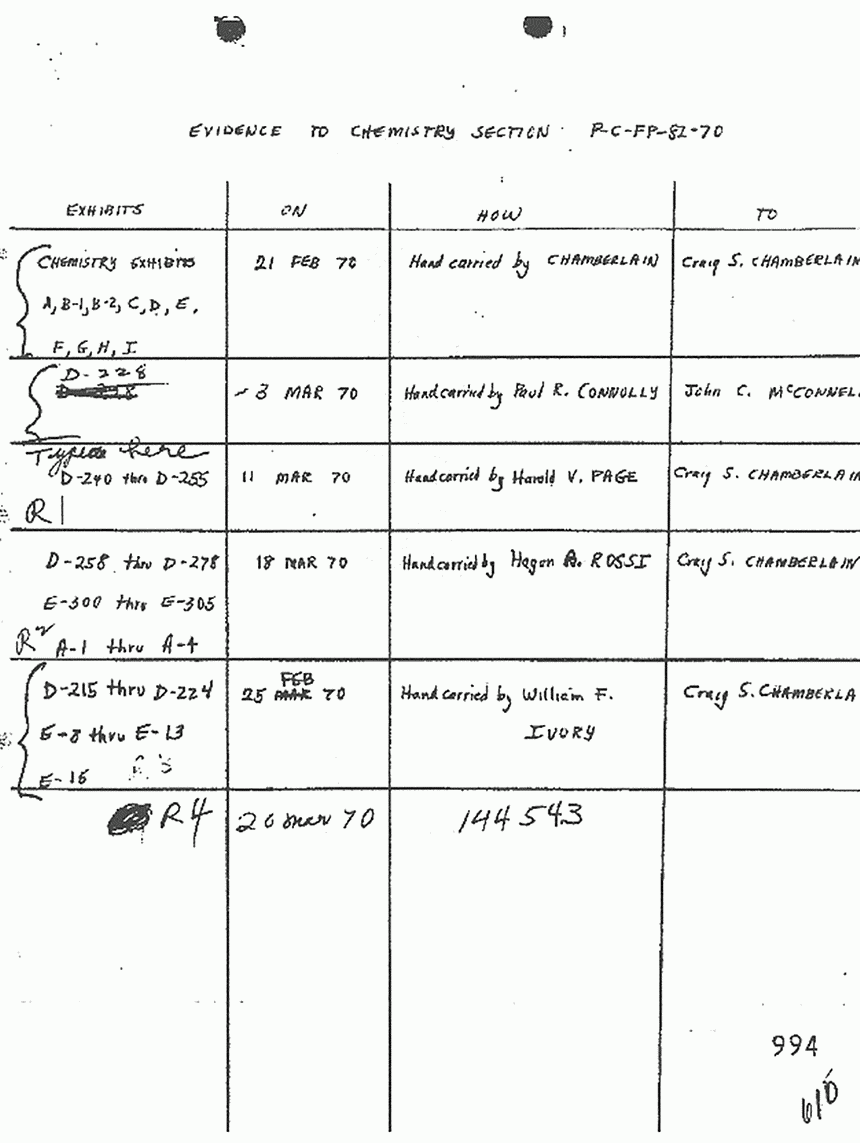 EVIDENCE TO CHEMISTRY SECTION P-C-FP-82-70
EXHIBITS ON HOW TO
CHEMISTRY EXHIBITS 21 FEB 70 Hand carried by CHAMBERLAIN Craig S. CHAMBERLAIN
A, B-1, B-2, C, D, E,
F, G, H, I
D-228
3 MAR 70 Handcarried by Paul R. CONNOLLY John C. McCONNEL
here
D-240 thru D-255 11 MAR 70 Handcarried by Harold V. PAGE Craig S. CHAMBERLAIN
R1
D-258 thru D-278 18 MAR 70 Handcarried by Hagan A. ROSSI Craig S. CHAMBERLAIN
E-300 thru E-305
R2 A-1 thru A-4
FEB
D-215 thru D-224 25 MAR 70 Hand carried by William F. Craig S. CHAMBERLA
E-8 thru E-13 IVORY
E-16 R3
R4 20 mar 70 144543
994
610